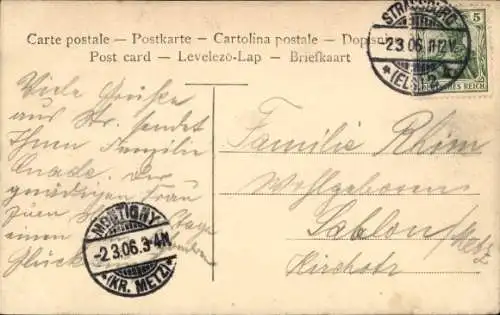 Carte postale — Postkarte — Cartolina postale — Dopisn
Post card — Levelezö-Lap — Briefkaart
STRASSBURG
2.3.06. 11-12V.
*(ELS.) 2
5
DEUTSCHES REICH
Viele Grüße
aus Str. sendet
Ihnen Familie
Der
gnädigen Frau
zum Tage
einen
Glück
MONTIGNY
-2.3.06.3-4N.
*(KR. METZ)*
Familie Rhim
Wohlgeboren
Sablon/Metz
Kirchstr